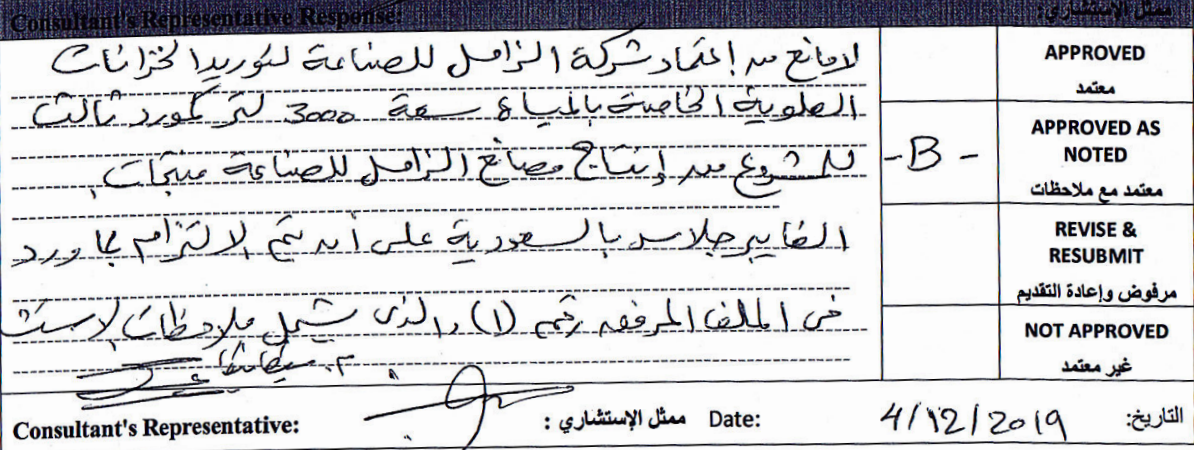 Consultant's Representative Response: ممثل الإستشاري:
لا مانع من إعتماد شركة الزامل للصناعة لتوريد الخزانات
العلوية الخاصة بالمياه سعة 3000 لتر كمورد ثالث
للمشروع من إنتاج مصانع الزامل للصناعة منتجات
الفايبر جلاس بالسعودية على أن يتم الالتزام بما ورد
فى الملف المرفق رقم (1) والذى يشمل ملاحظات
APPROVED
معتمد
- B -
APPROVED AS
NOTED
معتمد مع ملاحظات
REVISE &
RESUBMIT
مرفوض وإعادة التقديم
NOT APPROVED
غير معتمد
Consultant's Representative: ممثل الإستشاري : Date: 4/12/2019 التاريخ: